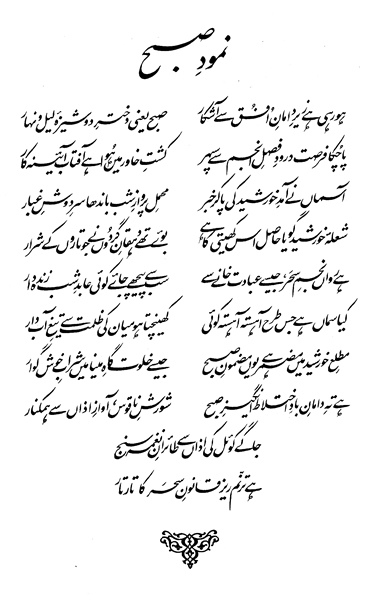 نمودِ صبح
ہو رہی ہے زیرِ دامانِ افق سے آشکار صبح یعنی دخترِ دوشیزۂ لیل و نہار
پا چکا فرصت درودِ فصلِ انجم سے سپہر کشتِ خاور میں ہوا ہے آفتاب آئینہ کار
آسماں نے آمدِ خورشید کی پا کر خبر محملِ پروازِ شب باندھا سرِ دوشِ غبار
شعلۂ خورشید گویا حاصل اس کھیتی کا ہے بوئے تھے دہقانِ گردوں نے جو تاروں کے شرار
ہے رواں نجمِ سحر، جیسے عبادت خانے سے سب سے پیچھے جائے کوئی عابدِ شب زندہ دار
کیا سماں ہے جس طرح آہستہ آہستہ کوئی کھینچتا ہو میان کی ظلمت سے تیغِ آب دار
مطلعِ خورشید میں مضمر ہے یوں مضمونِ صبح جیسے خلوت گاہِ مینا میں شرابِ خوش گوار
ہے تہِ دامانِ باد اختلاط انگیزِ صبح شورشِ ناقوس، آوازِ اذاں سے ہمکنار
جاگے کوئل کی اذاں سے طائرانِ نغمہ سنج
ہے ترنم ریز قانونِ سحر کا تار تار